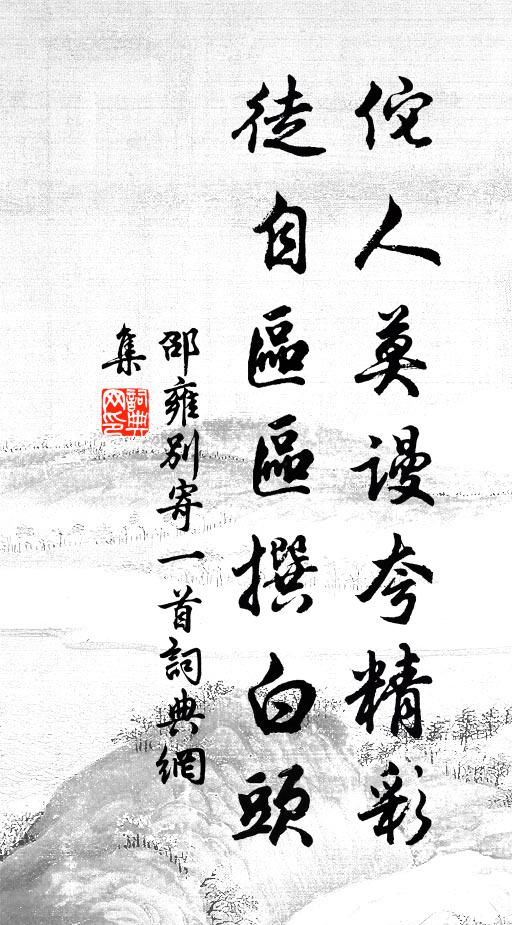 侘人莫謾夸精彩
徒自區區撰白頭
邵雍別寄一首詞典網
集
詞典网印